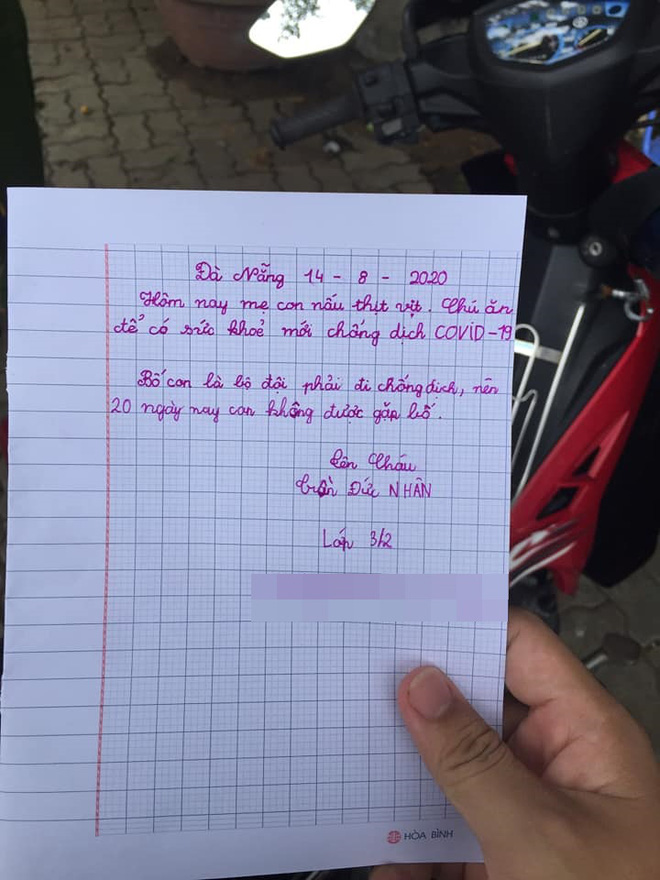 Đà Nẵng 14 - 8 - 2020
Hôm nay mẹ con nấu thịt vịt. Chú ăn
để có sức khoẻ mới chống dịch COVID-19
Bố con là bộ đội phải đi chống dịch, nên
20 ngày nay con không được gặp bố.
Tên Cháu
Trần Đức NHÂN
Lớp 3/2
HÒA BÌNH